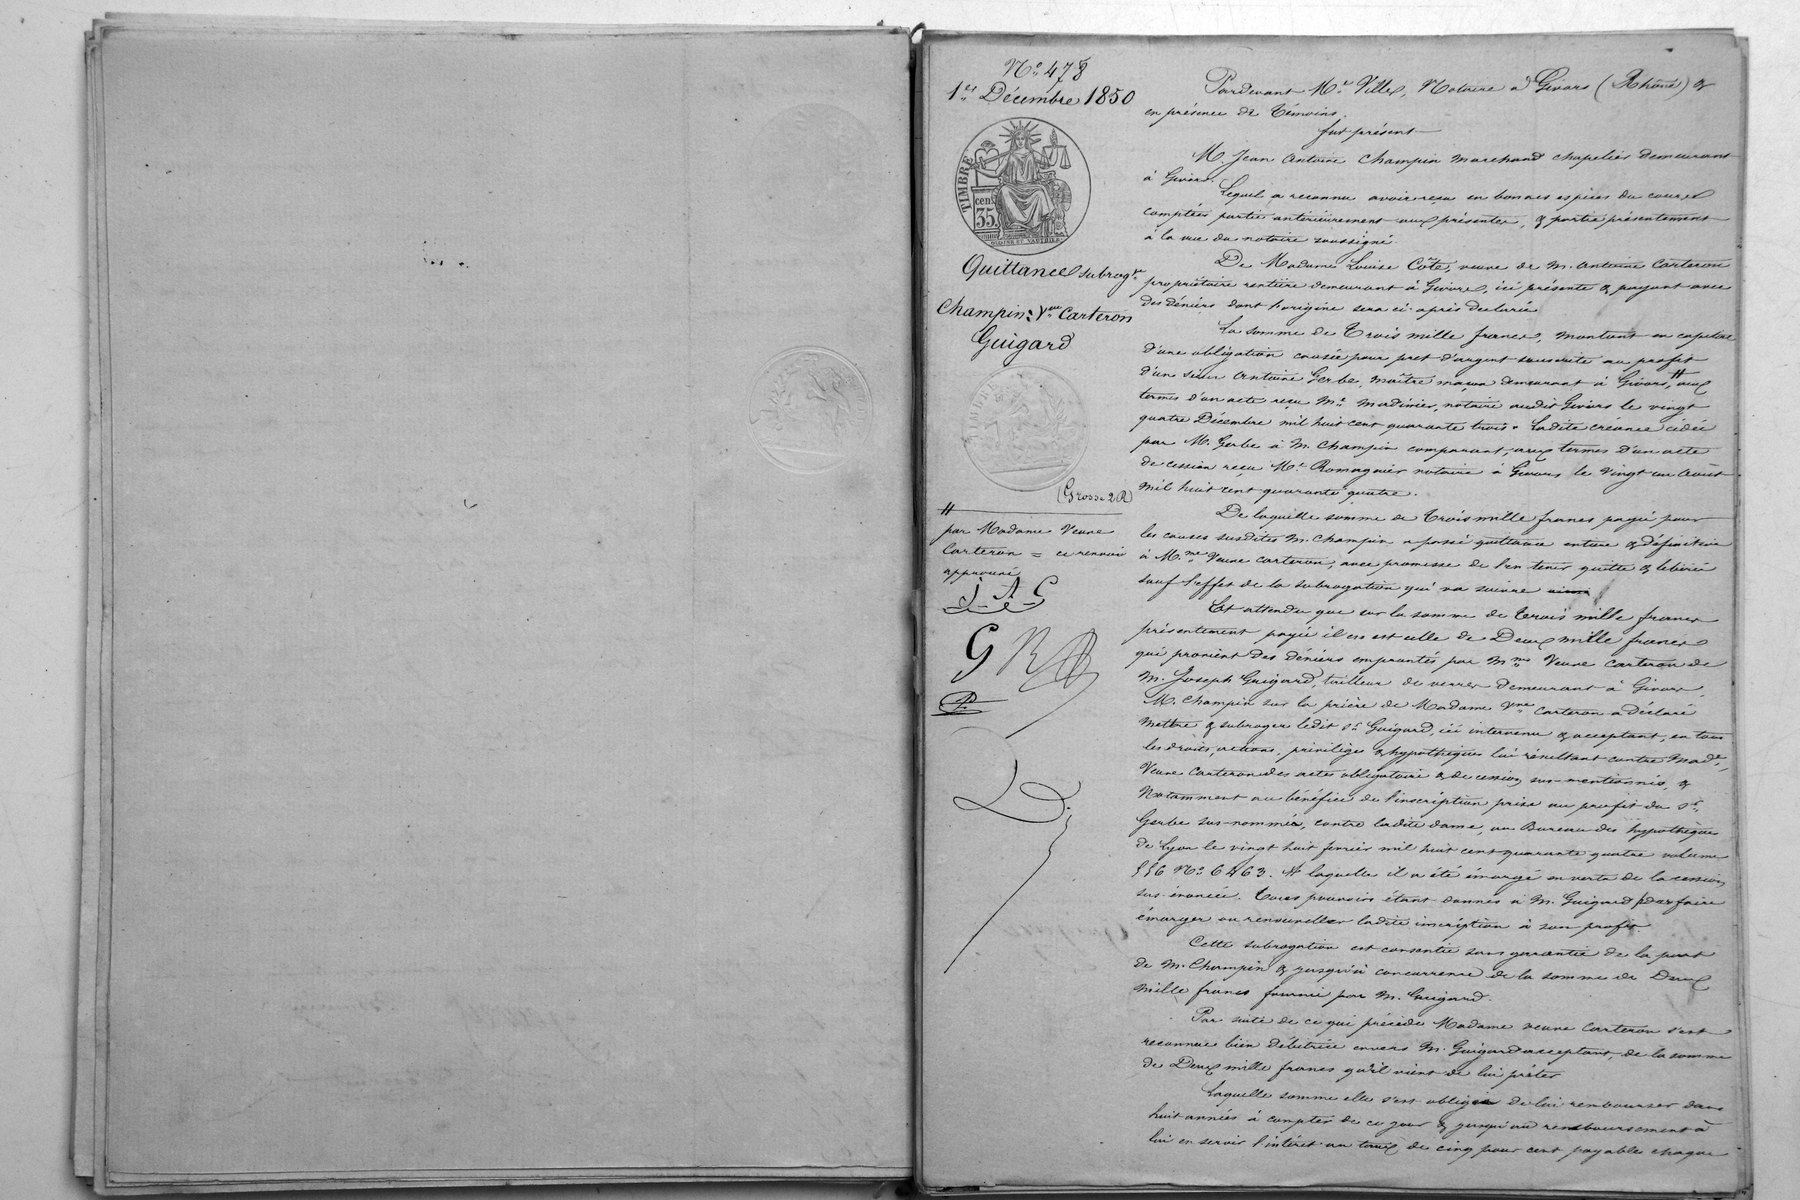 N° 478
1er Décembre 1850
TIMBRE
cen.
35.
Quittance subrogve
Champin: Vve Carteron
Guigard
(Grosse 2 R)
#
par Madame Veuve
Carteron = ce renvoi
approuvé
J-A-G
G
Pardevant Me Ville, Notaire à Givors (Rhône) &
en présence de Témoins.
fut présent
M. Jean Antoine Champin marchand chapelier demeurant
à Givors.
Lequel a reconnu avoir reçu en bonnes espèces du cours
comptées partie antérieurement aux présentes, & partie présentement
à la vue du notaire soussigné.
De Madame Louise Côte, veuve de M. Antoine Carteron
propriétaire rentière demeurant à Givors, ici présente & payant avec
des déniers dont l'origine sera ci-après déclarée
La somme de Trois mille francs, montant en capital
d'une obligation causée pour pret d'argent souscrite au profit
d'un sieur Antoine Gerbe, maître maçon demeurant à Givors, # aux
termes d'un acte reçu Me Madinier, notaire audit Givors le vingt
quatre Décembre mil huit cent quarante trois. Ladite créance cédée
par M. Gerbe à M. Champin comparant, aux termes d'un acte
de cession reçu Me Romagnier notaire à Givors le vingt un Août
mil huit cent quarante quatre.
De laquelle somme de Trois mille francs payée pour
les causes susdites M. Champin a passé quittance entière & définitive
à Mme Veuve Carteron, avec promesse de l'en tenir quitte & libérée
sauf l'effet de la subrogation qui va suivre
Et attendu que sur la somme de trois mille francs
présentement payée il en est celle de Deux mille francs
qui provient des déniers empruntés par Mme Veuve Carteron de
M. Joseph Guigard, tailleur de verres demeurant à Givors,
M. Champin sur la prière de Madame Vve Carteron a déclaré
mettre & subroger ledit Sr Guigard, ici intervenu & acceptant, en tous
les droits, actions, privilèges & hypothèques lui résultant contre Made
Veuve Carteron des actes obligatoire & de cession sus-mentionnés, &
Notamment au bénéfice de l'inscription prise au profit du Sr
Gerbe sus-nommé, contre ladite dame, au Bureau des hypothèques
de Lyon le vingt huit fevrier mil huit cent quarante quatre volume
556 No 6463. A laquelle il a été émargé en vertu de la cession
sus-énoncée. Tous pouvoirs étant donnés à M. Guigard pour faire
émarger ou renouveller ladite inscription à son profit.
Cette subrogation est consentie sans garantie de la part
de M. Champin & jusqu'à concurrence de la somme de Deux
mille francs fournie par M. Guigard.
Par suite de ce qui précède Madame veuve Carteron s'est
reconnue bien débitrice envers M. Guigard acceptant, de la somme
de Deux mille francs qu'il vient de lui prêter
Laquelle somme elle s'est obligée de lui rembourser dans
huit années à compter de ce jour & jusqu'au remboursement à
lui en servir l'intérêt au taux de cinq pour cent payable chaque